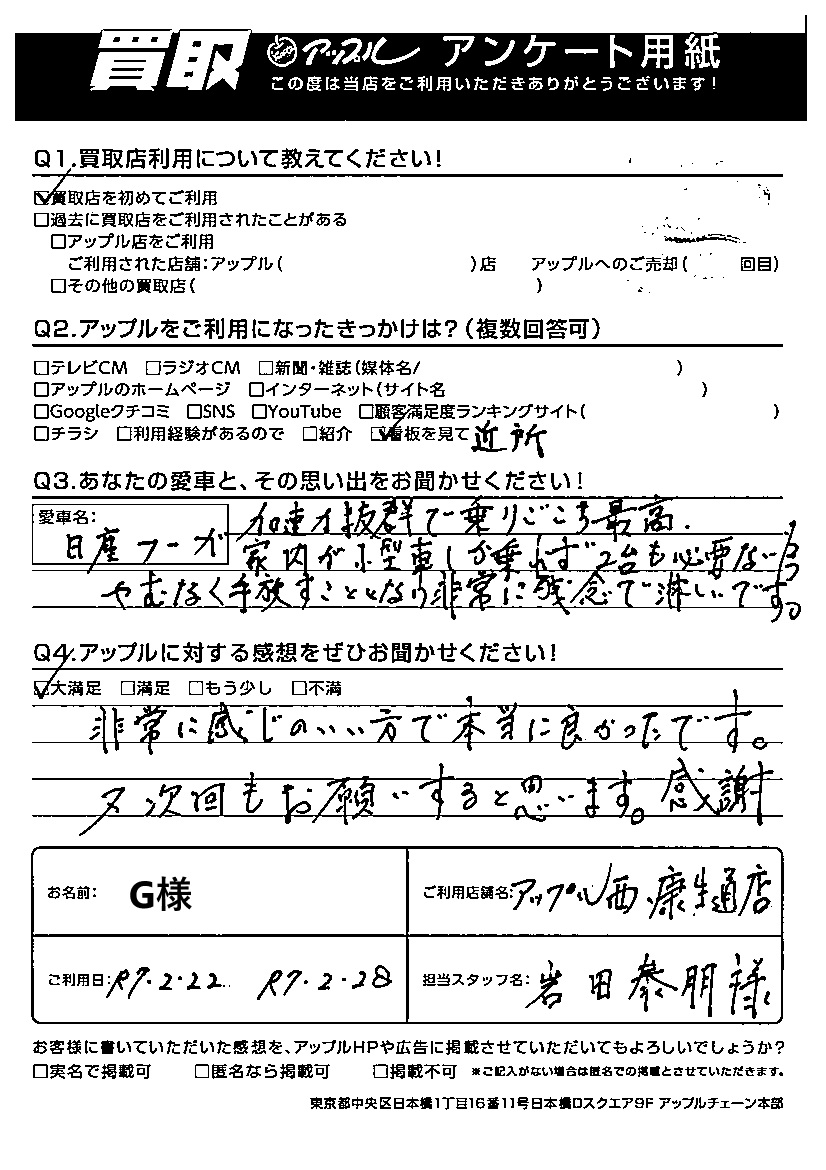 買取 アップル アンケート用紙
この度は当店をご利用いただきありがとうございます！
Q1.買取店利用について教えてください！
☑買取店を初めてご利用
□過去に買取店をご利用されたことがある
□アップル店をご利用
ご利用された店舗：アップル（　）店　アップルへのご売却（　回目）
□その他の買取店（　）
Q2.アップルをご利用になったきっかけは？（複数回答可）
□テレビCM　□ラジオCM　□新聞・雑誌（媒体名/　）
□アップルのホームページ　□インターネット（サイト名　）
□Googleクチコミ　□SNS　□YouTube　□顧客満足度ランキングサイト（　）
□チラシ　□利用経験があるので　□紹介　☑看板を見て 近所
Q3.あなたの愛車と、その思い出をお聞かせください！
愛車名： 日産フーガ
加速力抜群で乗りごこち最高.
家内が小型車しか乗れず2台も必要ない
やむなく手放すこととなり非常に残念で淋しいです。
Q4.アップルに対する感想をぜひお聞かせください！
☑大満足　□満足　□もう少し　□不満
非常に感じのいい方で本当に良かったです。
又次回もお願いすると思います。感謝
お名前： G様
ご利用店舗名：アップル西 通店
ご利用日：R7.2.22　R7.2.28
担当スタッフ名：岩田泰朋様
お客様に書いていただいた感想を、アップルHPや広告に掲載させていただいてもよろしいでしょうか？
□実名で掲載可　□匿名なら掲載可　□掲載不可　※ご記入がない場合は匿名での掲載とさせていただきます。
東京都中央区日本橋1丁目16番11号日本橋ロスクエア9F アップルチェーン本部